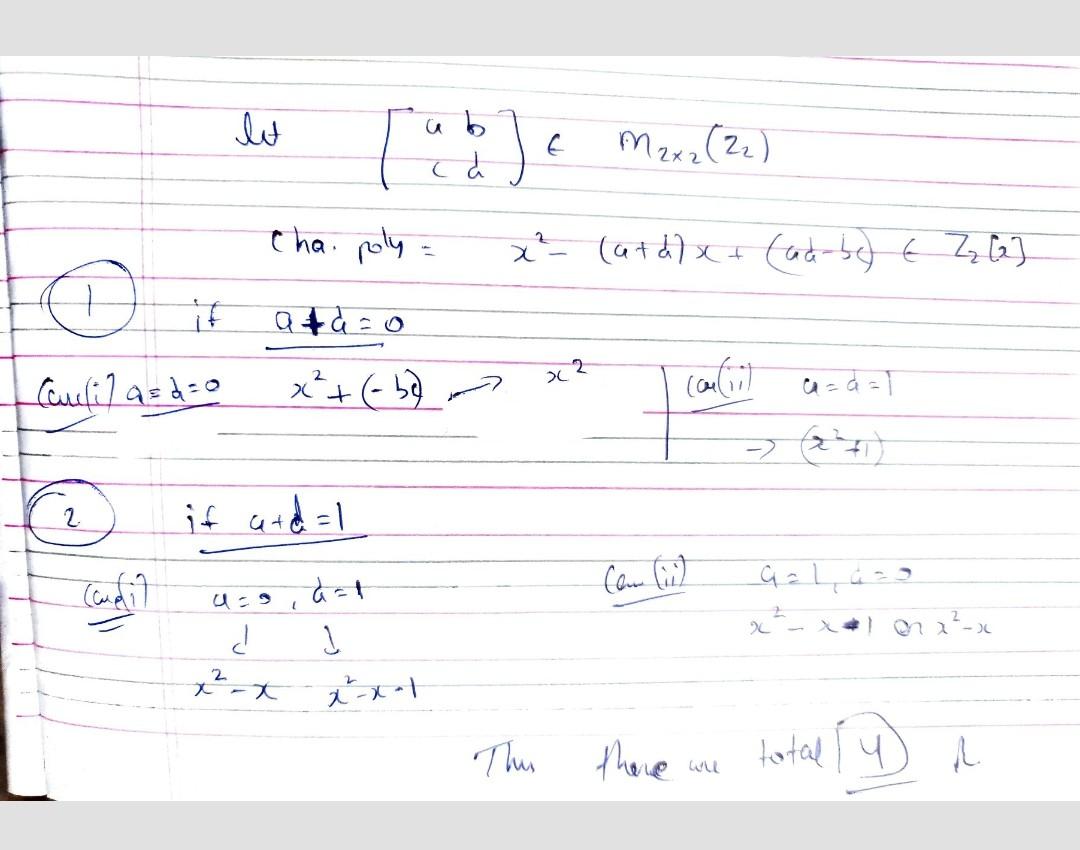 let [ a b
c d ] ∈ M2×2(Z2)
Cha. poly = x² - (a+d)x + (ad-bc) ∈ Z2[x]
1
if a+d=0
Case(i) a=d=0 x² + (-bc) → x² Case(ii) a=d=1
→ (x²+1)
2 if a+d=1
Case(i) a=0, d=1 Case (ii) a=1, d=0
↓ ↓ x² - x - 1 or x²-x
x²-x x²-x-1
Thus there are total 4